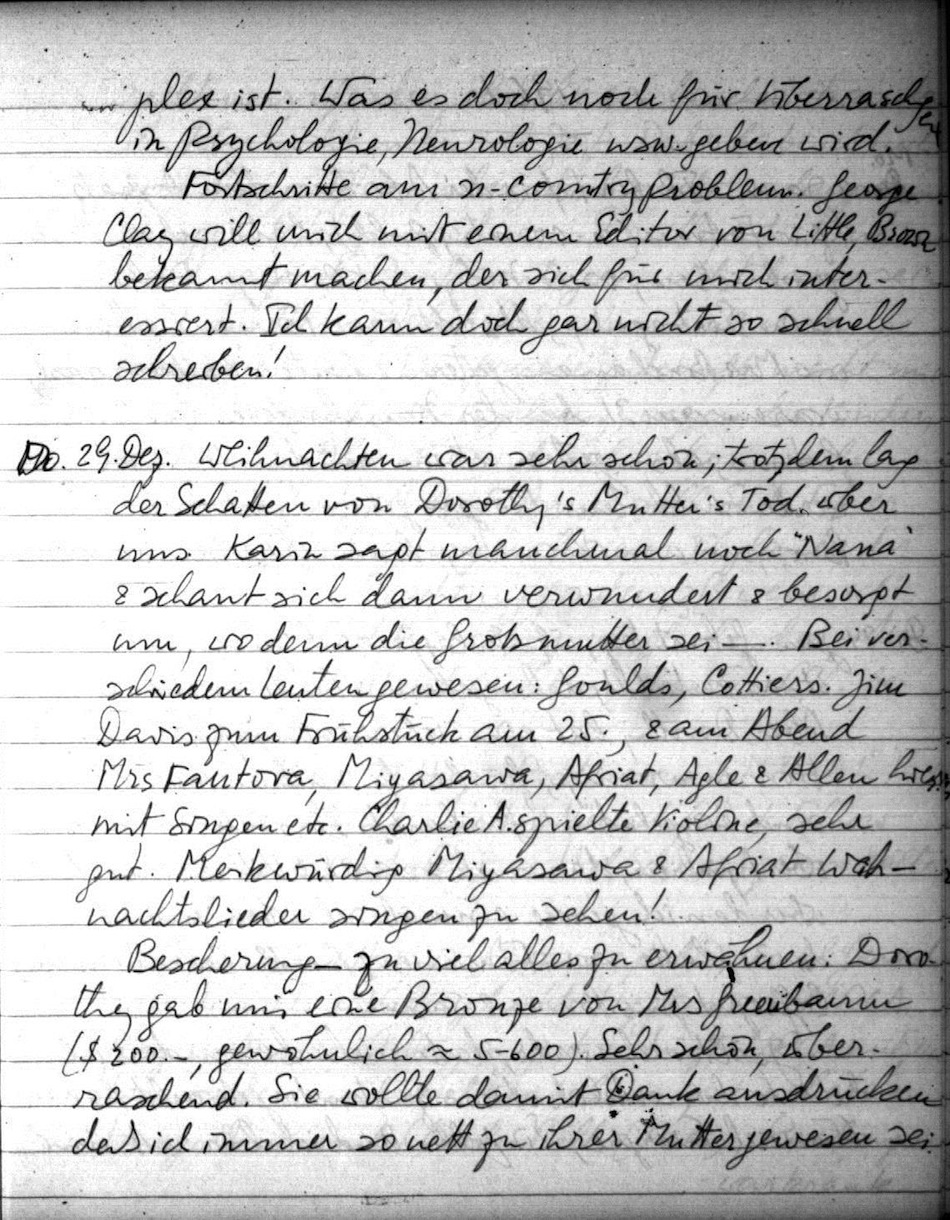 plex ist. Was es doch noch für Überraschgen
in Psychologie, Neurologie usw. geben wird.
Fortschritte am n-country problem. George
Clay will mich mit einem Editor von Little, Brown
bekannt machen, der sich für mich inter-
essiert. Ich kann doch gar nicht so schnell
schreiben!
Do. 29. Dez. Weihnachten war sehr schön; trotzdem lag
der Schatten von Dorothy's Mutter's Tod über
uns. Karin sagt manchmal noch "Nana"
& schaut sich dann verwundert & besorgt
um, wo denn die Großmutter sei —. Bei ver-
schiedenen Leuten gewesen: Goulds, Cottiers. Jim
Davis zum Frühstück am 25., & am Abend
Mrs Fantova, Miyasawa, Afriat, Agle & Allen hier,
mit Singen etc. Charlie A. spielte Violine, sehr
gut. Merkwürdig Miyasawa & Afriat Weih-
nachtslieder singen zu sehen!
Bescherung – zu viel alles zu erwähnen: Doro-
thy gab mir eine Bronze von Mrs Greenbaum
($200.-, gewöhnlich ≈ 5-600). Sehr schön, über-
raschend. Sie wollte damit Dank ausdrücken
daß ich immer so nett zu ihrer Mutter gewesen sei.